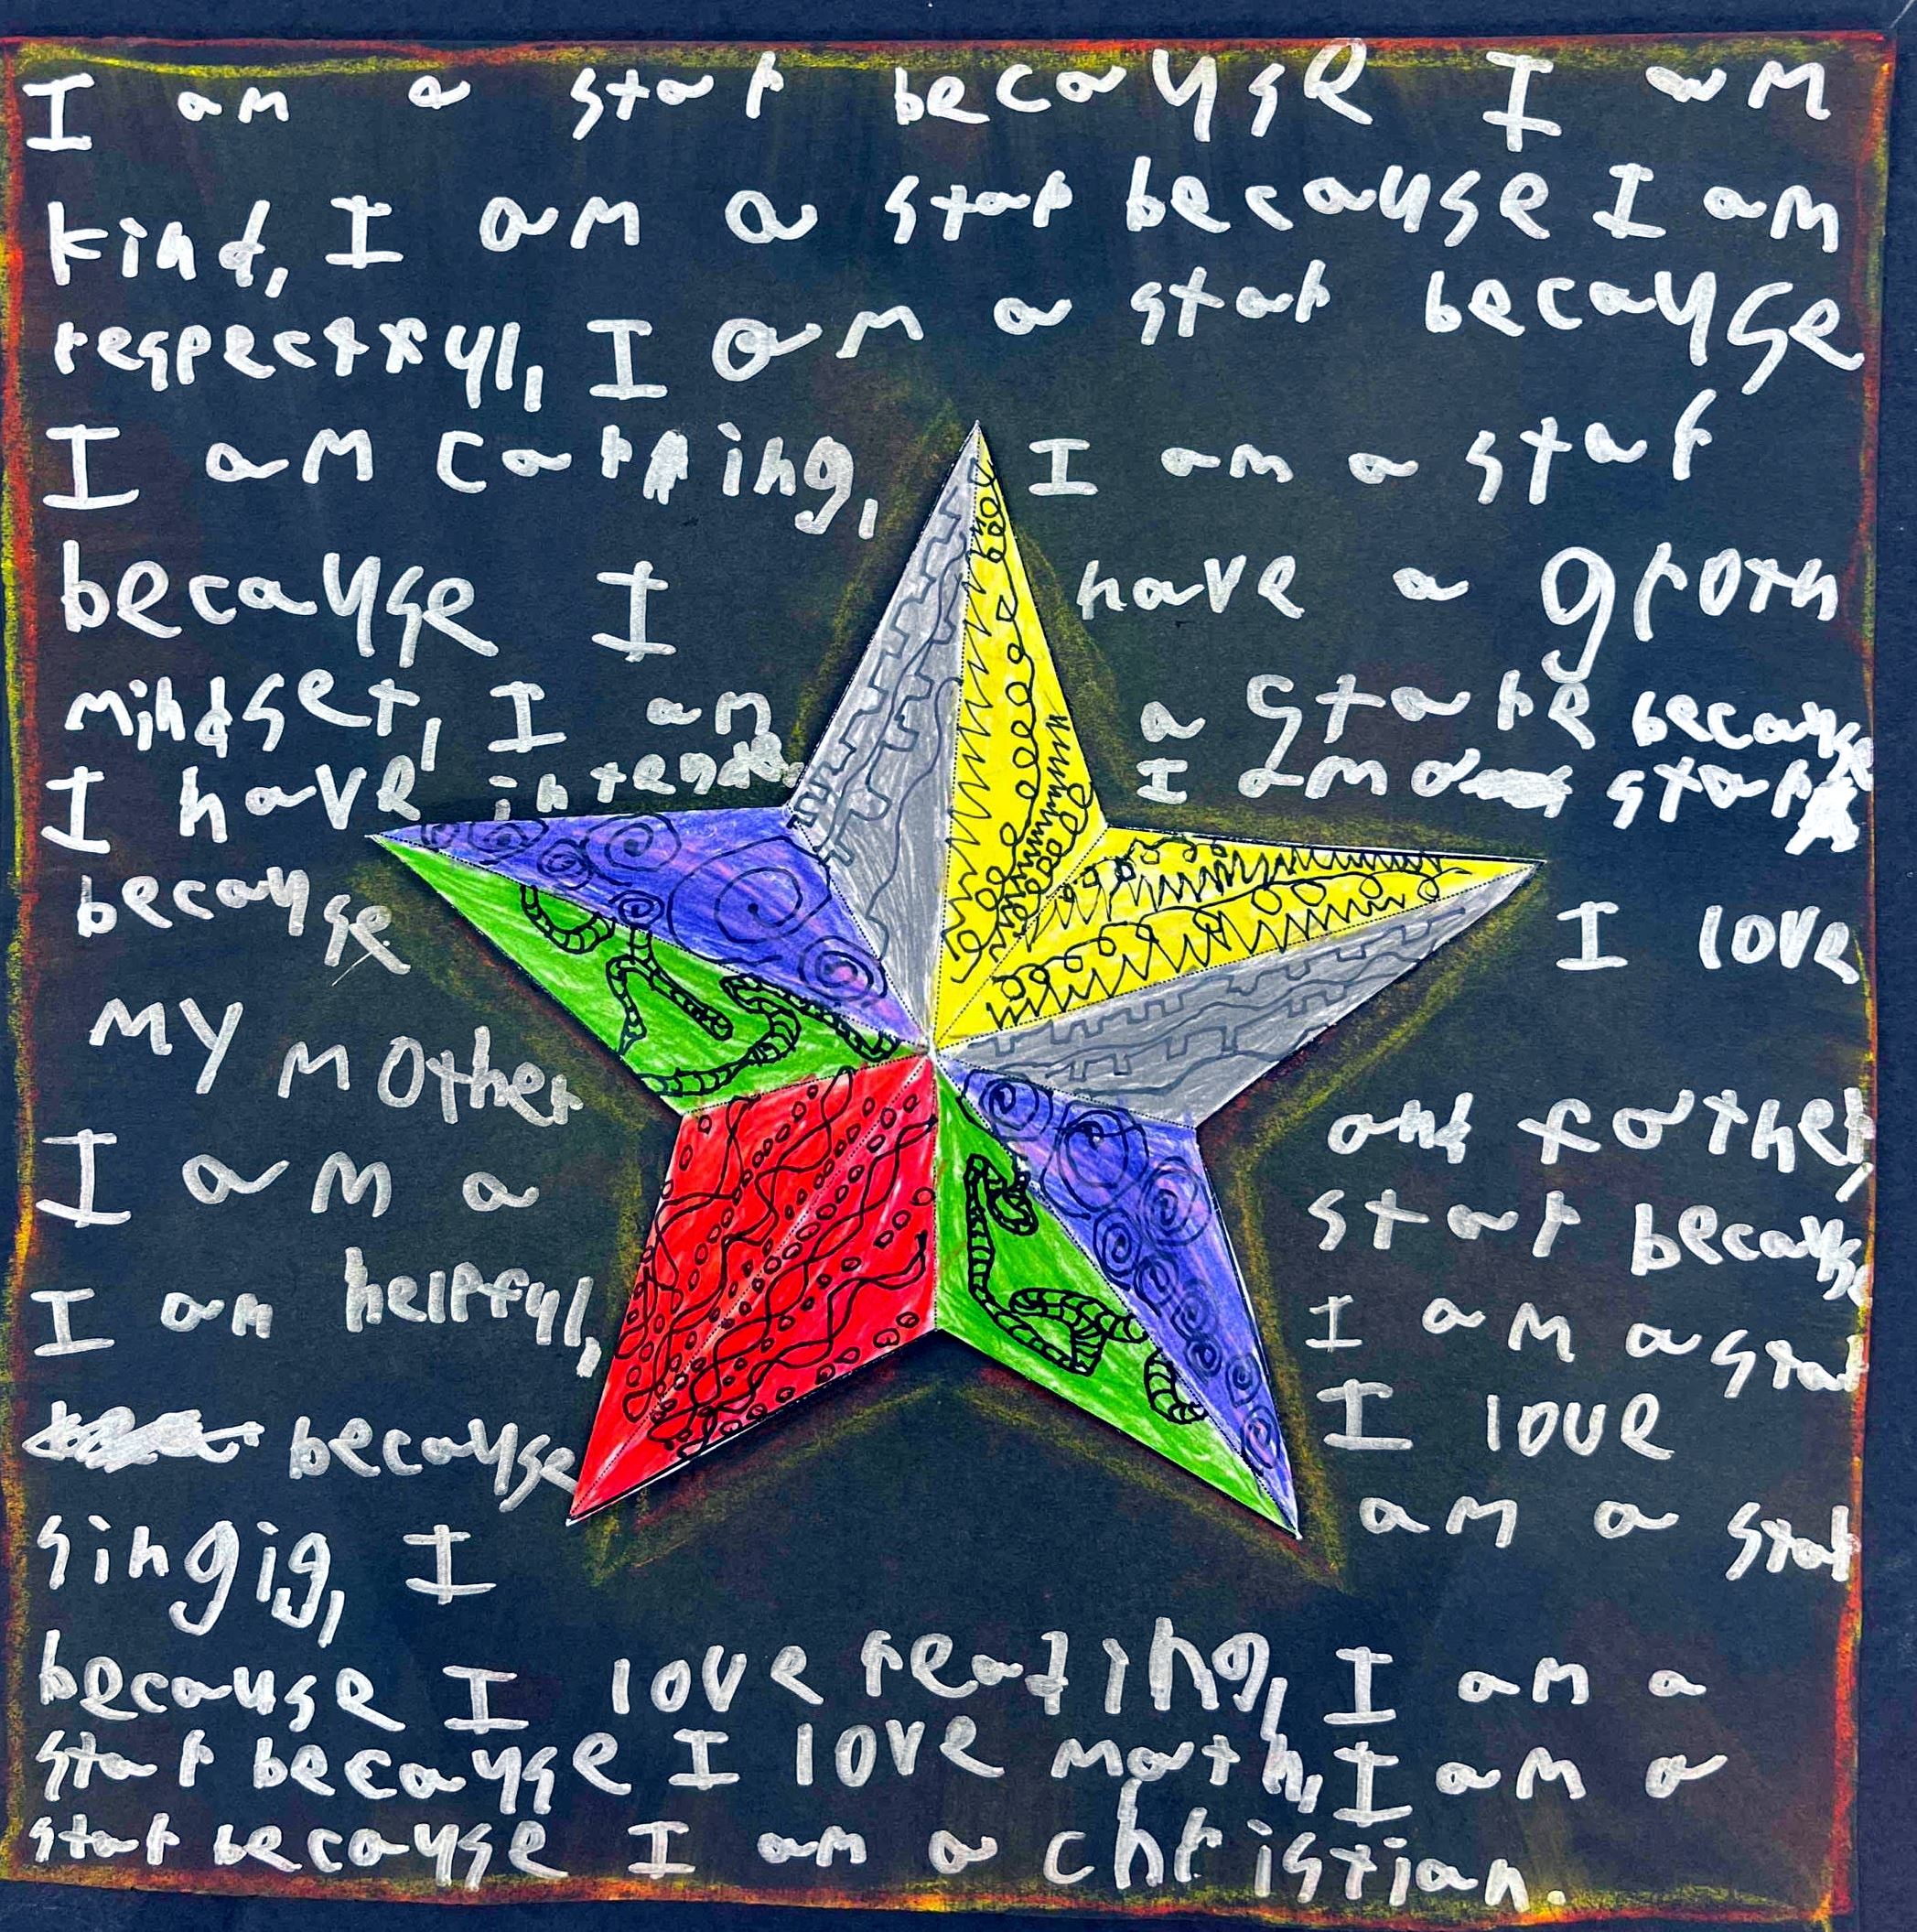 I am a star because I am
kind, I am a star because I am
respectful, I am a star because
I am caring, I am a star
because I have a groth
mindset, I am a stare because
I have I am a star
because I love
my mother and father,
I am a star because
I am helpful, I am a star
because I love
singig, I am a star
because I love reading, I am a
star because I love math, I am a
star because I am a christian.